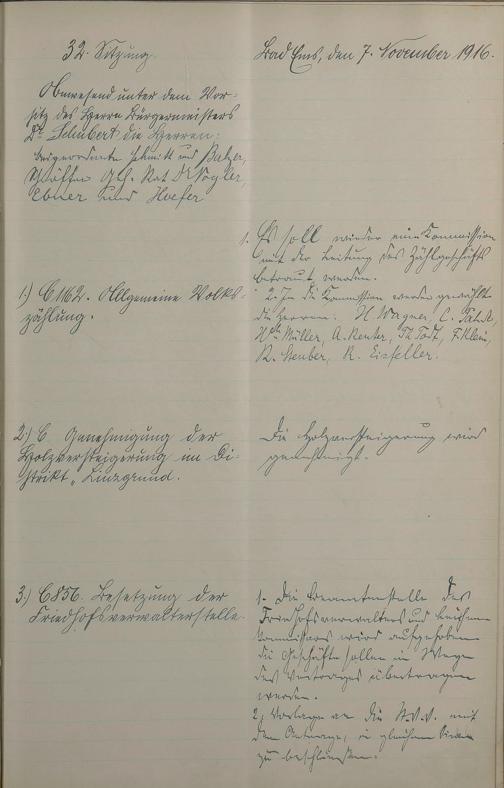 32. Sitzung.
Bad Ems, den 7. November 1916.
Anwesend unter dem Vor-
sitz des Herrn Bürgermeisters
Dr. Schubert die Herren:
Beigeordnete Schmitt und Balzer,
Schöffen Geh. Rat Dr. Vogler,
Ebner und Hoefer
1.) C 1162. Allgemeine Volks-
zählung.
1. Es soll wieder eine Kommission
mit der Leitung des Zählgeschäfts
betraut werden.
2. In die Kommission werden gewählt
die Herren: H. Wagner, C.
Wilh. Müller, A. Reuter, Th. Todt, F. Klein,
R. Steuber, R. Eisfeller.
2.) C Genehmigung der
Holzversteigerung im Di-
strikt „Linzgrund.
Die Holzversteigerung wird
genehmigt.
3.) C 856. Besetzung der
Friedhofsverwalterstelle.
1. Die Beamtenstelle des
Friedhofsverwalters und
Kommissars wird aufgehoben
die Geschäfte sollen im Wege
des Vertrages übertragen
werden.
2. Vorlage an die St.V.V. mit
dem Antrage, in gleichem Sinne
zu beschließen.